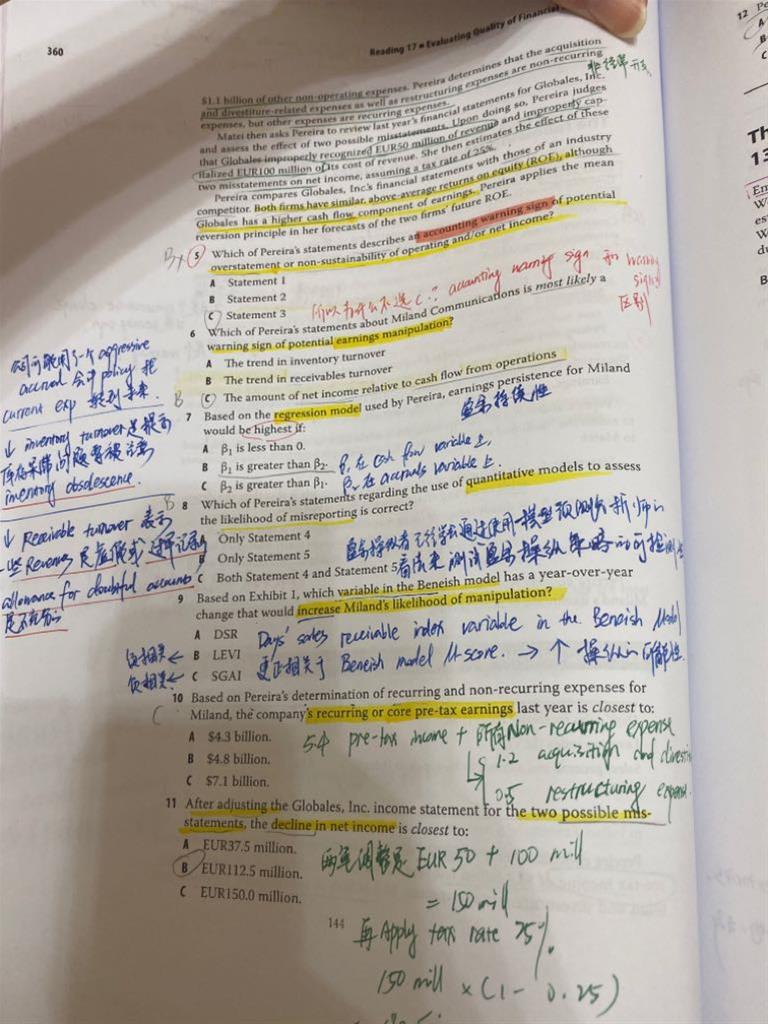 360
Reading 17 ■ Evaluating Quality of Financial
$1.1 billion of other non-operating expenses. Pereira determines that the acquisition
and divestiture-related expenses as well as restructuring expenses are non-recurring
expenses, but other expenses are recurring expenses.
Matei then asks Pereira to review last year's financial statements for Globales, Inc.
and assess the effect of two possible misstatements. Upon doing so, Pereira judges
that Globales improperly recognized EUR50 million of revenue and improperly cap-
italized EUR100 million of its cost of revenue. She then estimates the effect of these
two misstatements on net income, assuming a tax rate of 25%.
Pereira compares Globales, Inc.'s financial statements with those of an industry
competitor. Both firms have similar, above-average returns on equity (ROE), although
Globales has a higher cash flow component of earnings. Pereira applies the mean
reversion principle in her forecasts of the two firms' future ROE.
5 Which of Pereira's statements describes an accounting warning sign of potential
overstatement or non-sustainability of operating and/or net income?
A Statement 1
B Statement 2
C Statement 3
所以为什么不选C? accounting warning sign 和 warning sign 区别
6 Which of Pereira's statements about Miland Communications is most likely a
warning sign of potential earnings manipulation?
A The trend in inventory turnover
B The trend in receivables turnover
C The amount of net income relative to cash flow from operations
公司可能用了一个 aggressive
accrual 会计 policy 把
current exp 转到未来.
↓ inventory turnover 是提示
inventory obsolescence.
↓ Receivable turnover 表示
一些 Revenues 是虚假或
allowance for doubtful accounts
是不充分
B
7 Based on the regression model used by Pereira, earnings persistence for Miland
would be highest if:
盈余持续性
A β1 is less than 0.
B β1 is greater than β2.
C β2 is greater than β1.
β1 在 cash flow variable 上,
β2 在 accruals variable 上.
B
8 Which of Pereira's statements regarding the use of quantitative models to assess
the likelihood of misreporting is correct?
A Only Statement 4
B Only Statement 5
C Both Statement 4 and Statement 5
9 Based on Exhibit 1, which variable in the Beneish model has a year-over-year
change that would increase Miland's likelihood of manipulation?
A DSR
B LEVI
C SGAI
Days' sales receivable index variable in the Beneish Model
正相关于 Beneish model M-score. → ↑ 操纵的可能性
负相关 ←
负相关 ←
10 Based on Pereira's determination of recurring and non-recurring expenses for
Miland, the company's recurring or core pre-tax earnings last year is closest to:
C
A $4.3 billion.
B $4.8 billion.
C $7.1 billion.
5.4 pre-tax income + 所有 Non-recurring expense
1.2 acquisition and
0.5 restructuring expense.
11 After adjusting the Globales, Inc. income statement for the two possible mis-
statements, the decline in net income is closest to:
A EUR37.5 million.
B EUR112.5 million.
C EUR150.0 million.
两笔调整是 EUR 50 + 100 mill
= 150 mill
再 Apply tax rate 25%.
150 mill × (1 - 0.25)
144
12
A
B
C
Th
13